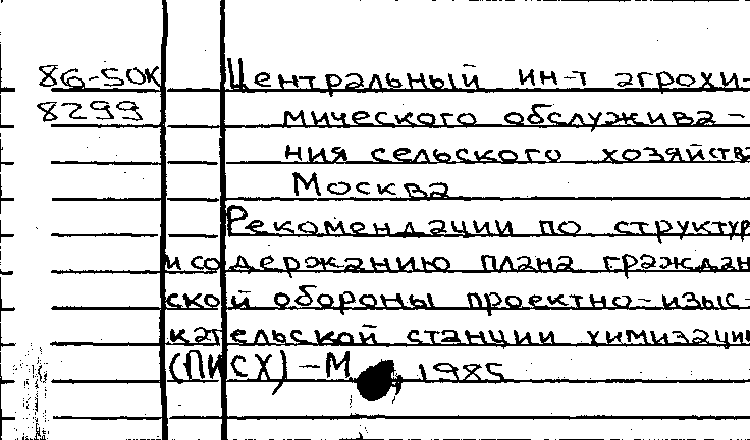 86-50К Центральный ин-т агрохи-
8299 мического обслужива-
ния сельского хозяйства
Москва
Рекомендации по структур
и содержанию плана граждан
ской обороны проектно-изыс-
кательской станции химизации
(ПИСХ) - М , 1985